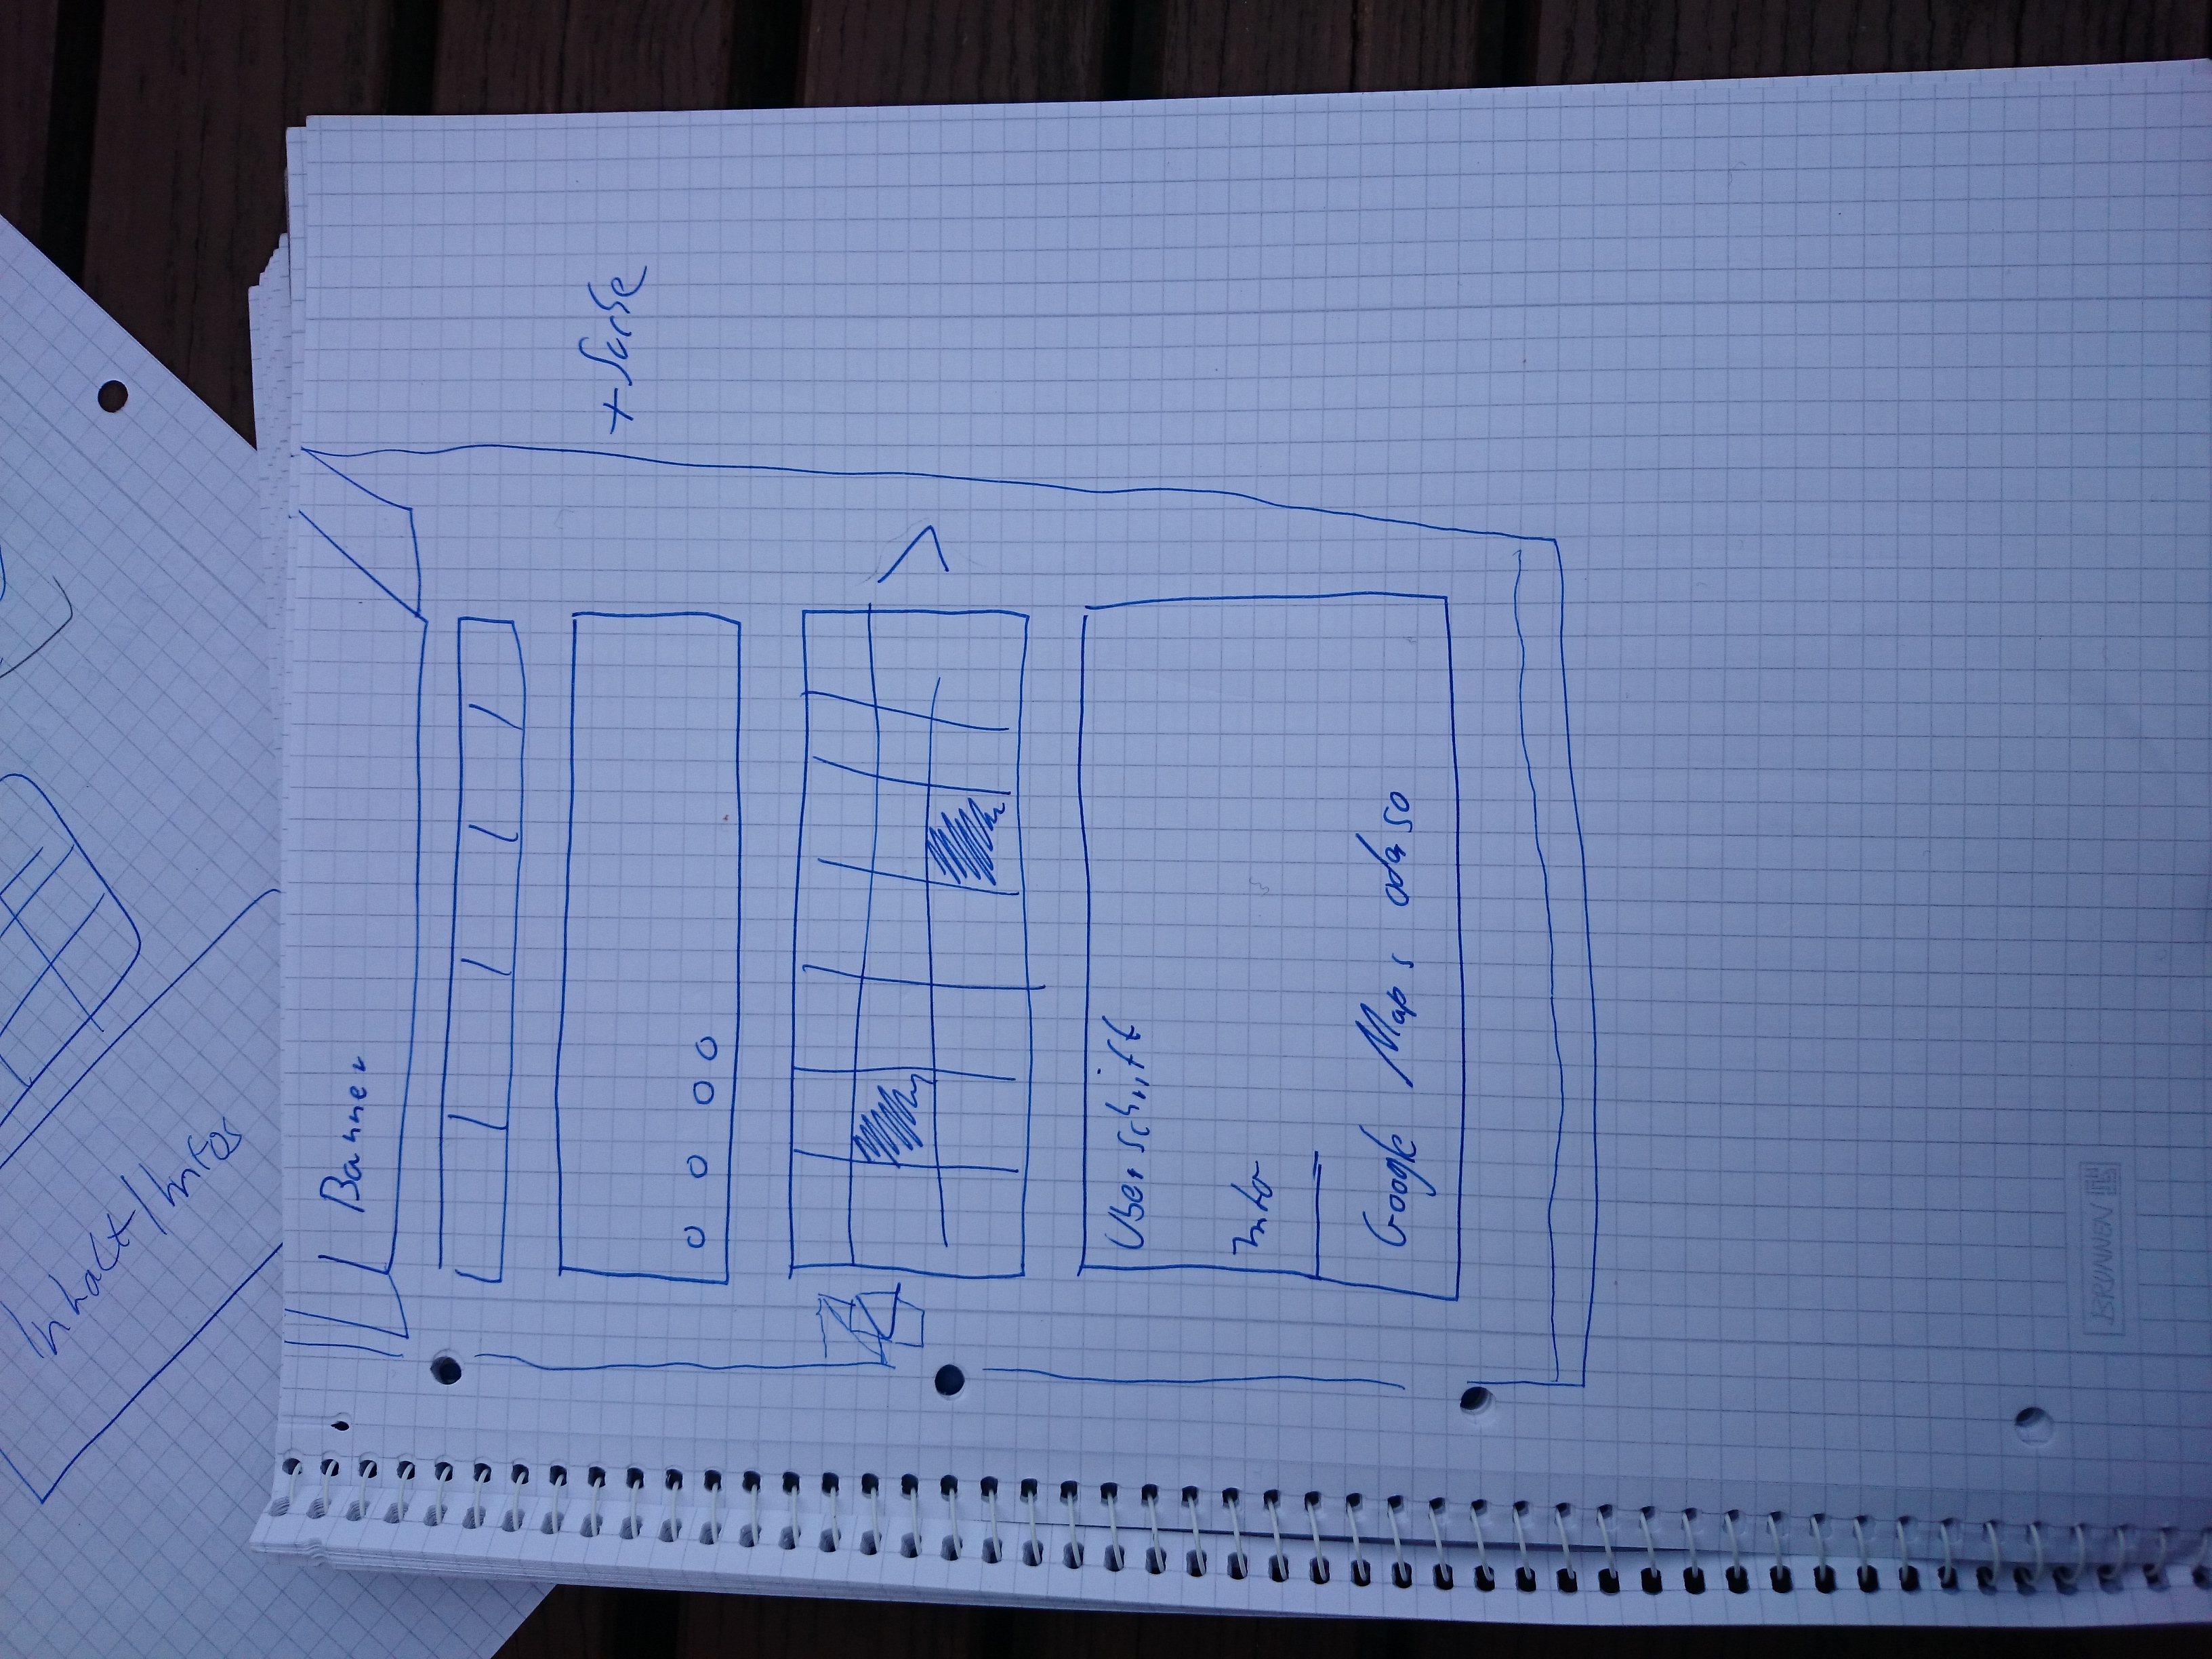 Inhalt/Infos
Banner
+ Suche
Uberschrift
Info
Google Maps oda so
BRUNNEN